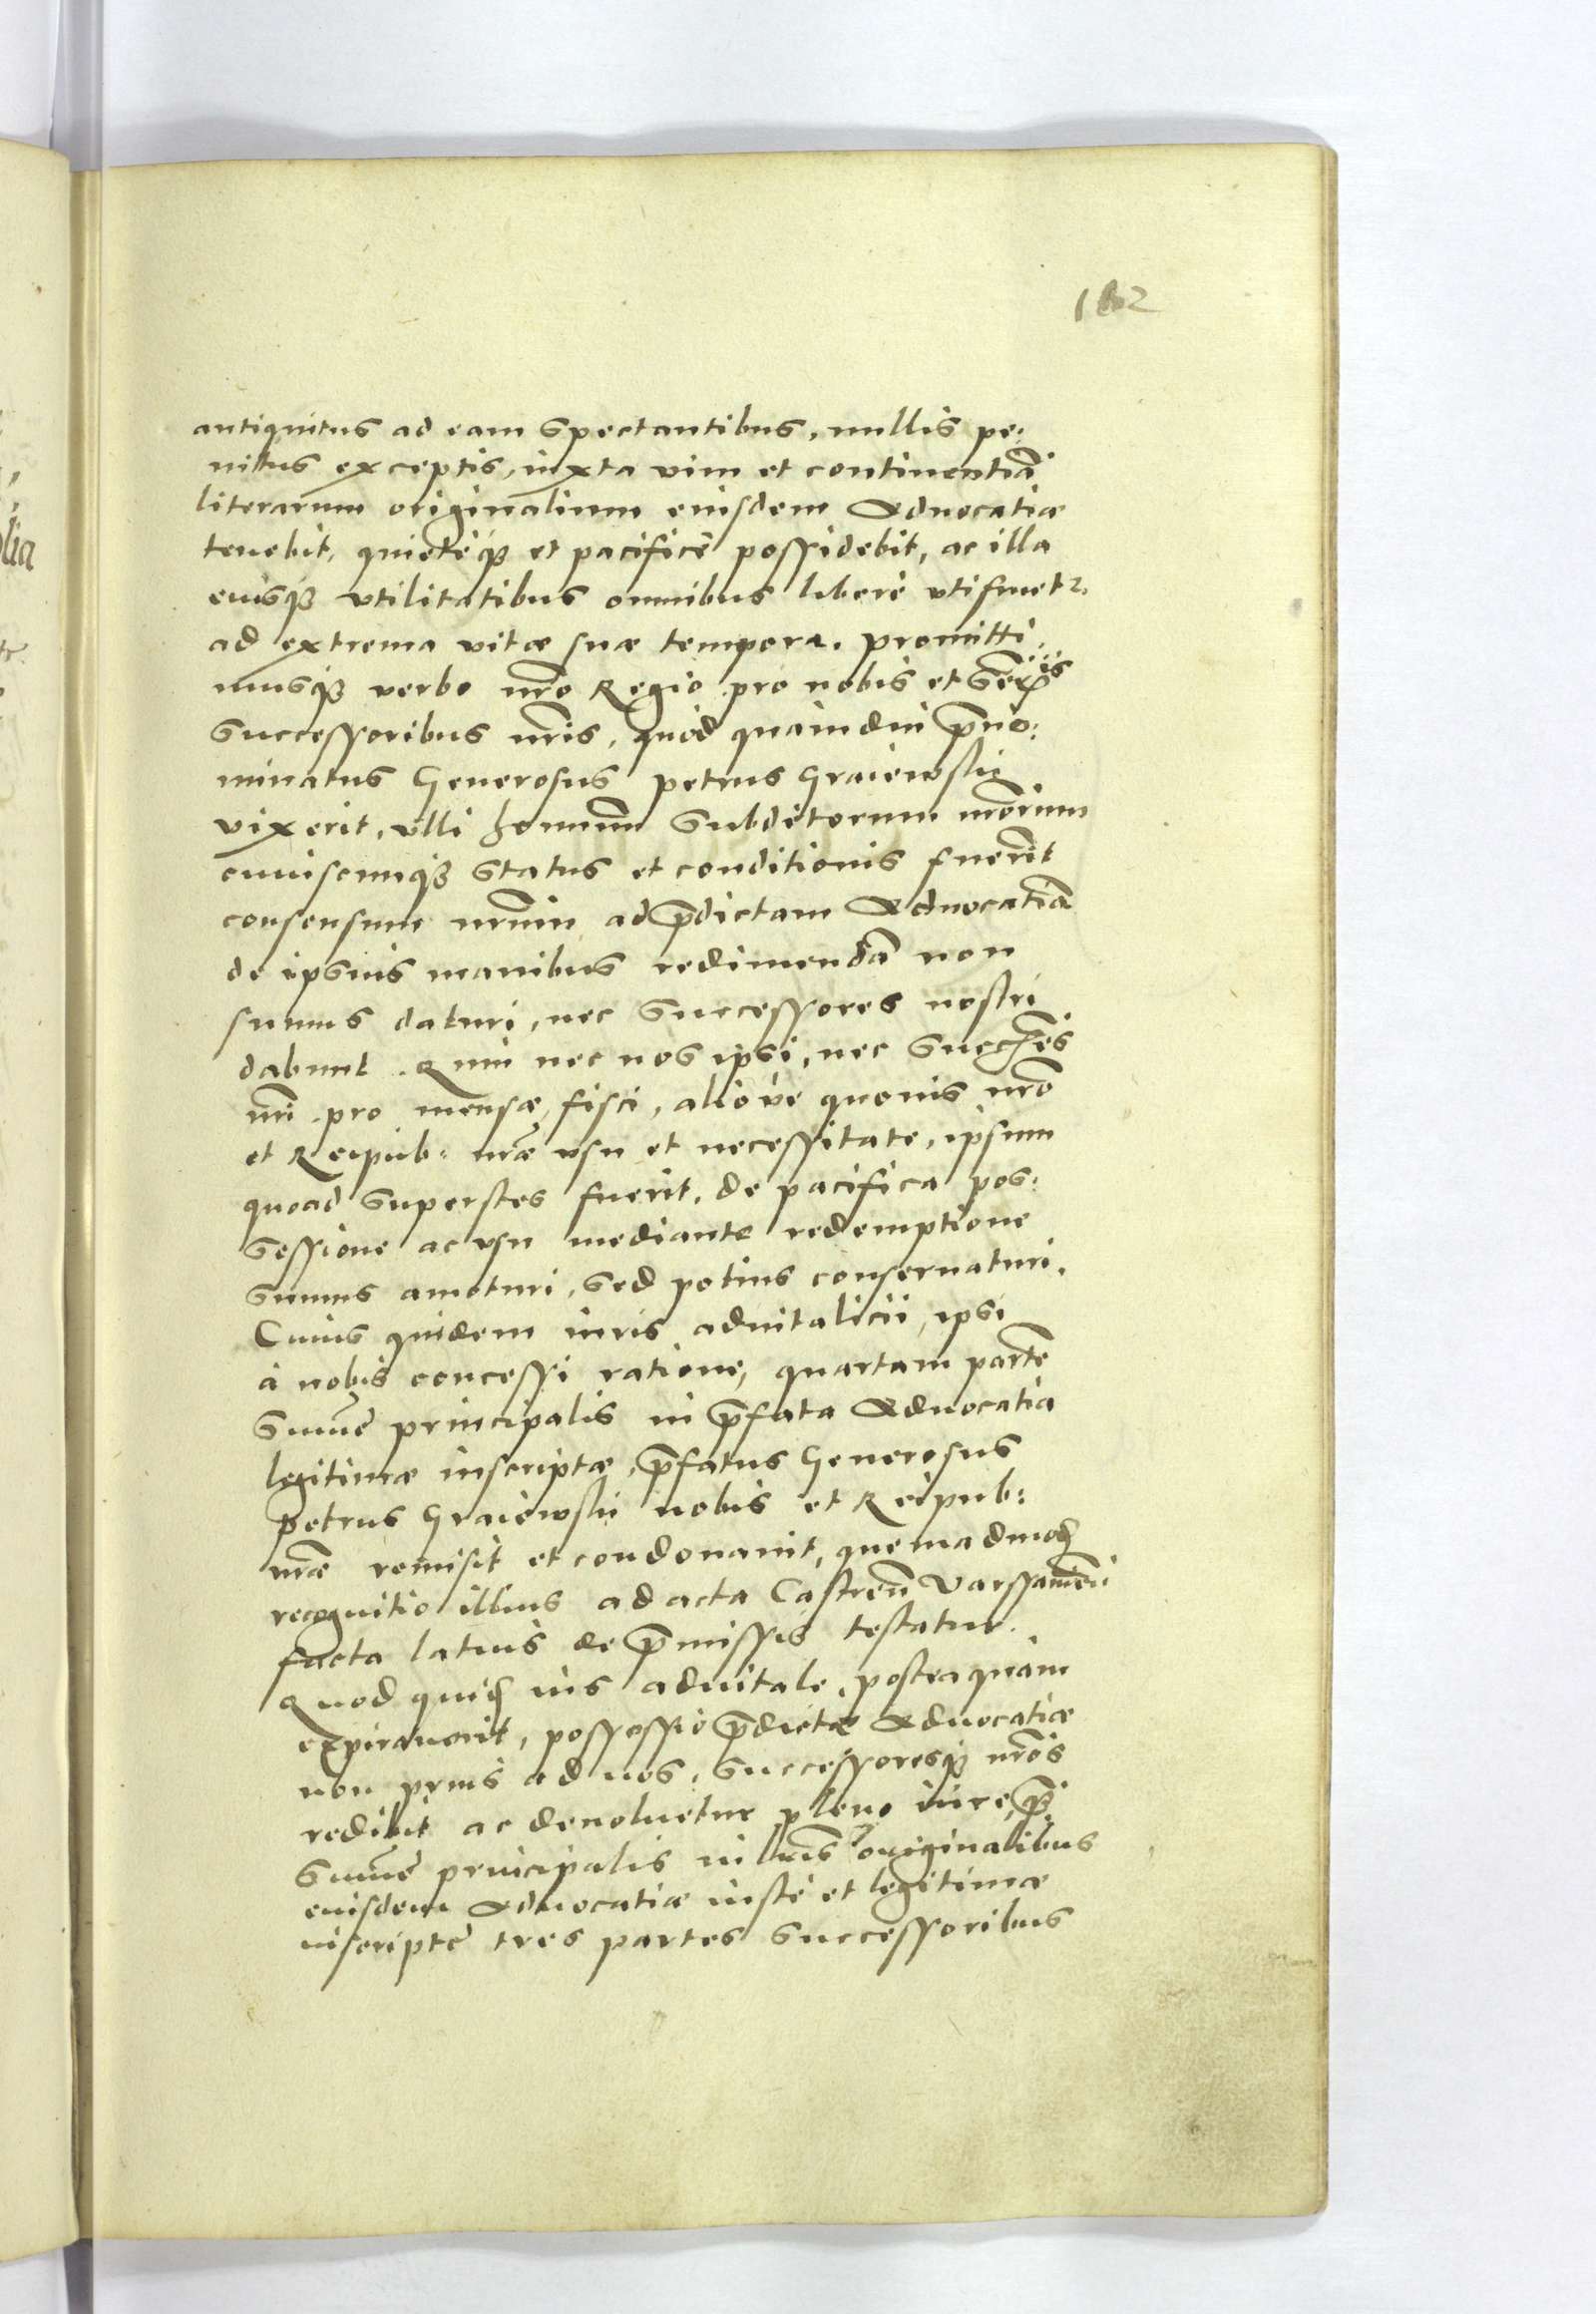 antiquitus ad eam spectantibus, nullis pe:
nitus exceptis, iuxta vim et continentiã
literarum originalium eiusdem Aduocatiæ
tenebit, quietéq₃ et pacificè possidebit, ac illa
eiusq₃ vtilitatibus omnibus liberè vtifruet2.
ad extrema vitæ suæ tempora. promitti:
musq₃ verbo nr̃o Regio pro nobis et Serm̃is
Successoribus nr̃is, quòd quamdiu p̃no:
minatus Generosus Petrus Graiewskii
vixerit, vlli hominũ Subditorum nr̃orum
cuiuscunq₃ Status et conditionis fuerit
consensum nr̃um ad p̃dictam Aduocatiã
de ipsius manibus redimendã non
sumus daturi, nec Successores nostri
dabunt. Quin nec nos ipsi, nec Succ̃res
nr̃i pro mensæ, fisci, alióve quouis nr̃o
et Reipub: nr̃æ vsu et necessitate, ipsum
quoad Superstes fuerit, de pacifica pos:
sessione ac vsu mediante redemptione
sumus amoturi, sed potius conseruaturi.
Cuius quidem iuris aduitalicii, ipsi
à nobis concessi ratione, quartam partẽ
Sum̃e principalis in p̃fata Aduocatia
legitimæ inscriptæ, p̃fatus Generosus
Petrus Graiewskii nobis et Reipub:
nr̃æ remisit et condonauit, quemadmod̃
recognitio illius ad acta Castreñ Varssauień
facta latius de p̃missis testatur.
Quod quid̃ ius aduitale, posteaquàm
expirauerit, possessio p̃dictæ Aduocatiæ
non prius ad nos, Successoresq₃ nr̃os
redibit ac deuoluetur pleno iure,
Sum̃e principalis in lr̃is originalibus
eiusdem Aduocatiæ iustè et legitimæ
inscriptę tres partes Successoribus